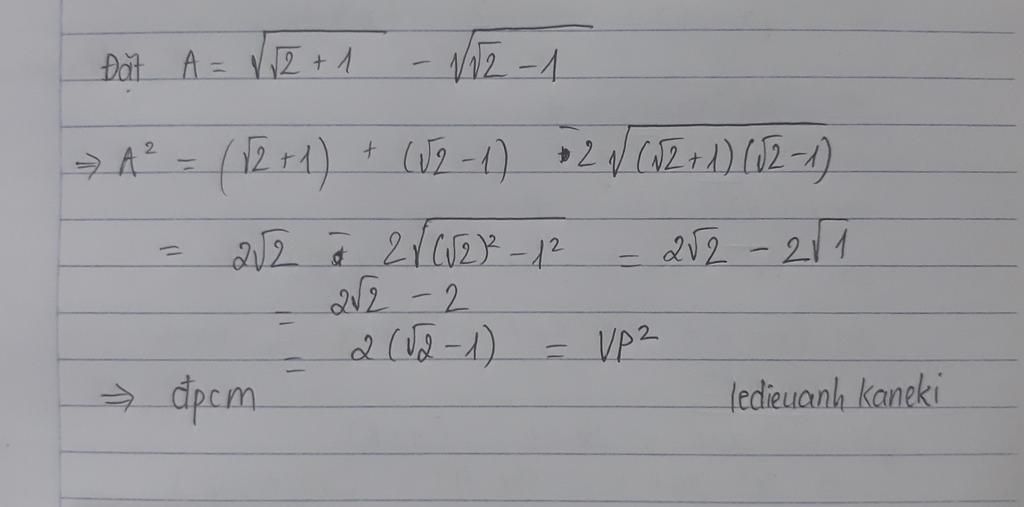 Đặt A = √(√2 + 1) - √(√2 - 1)
⇒ A² = (√2 + 1) + (√2 - 1) - 2√((√2 + 1)(√2 - 1))
= 2√2 - 2√((√2)² - 1²) = 2√2 - 2√1
= 2√2 - 2
= 2(√2 - 1) = VP²
⇒ đpcm ledieuanh kaneki